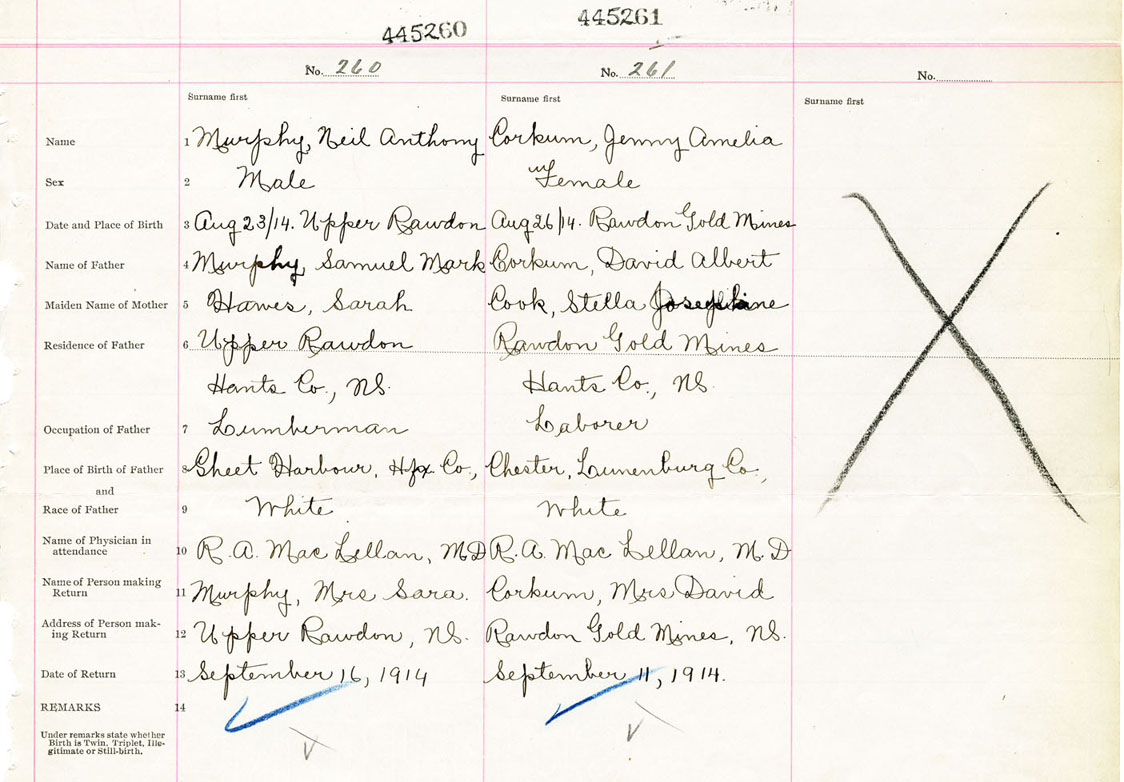 445260 445261
No. 260 No. 261 No.
Surname first Surname first Surname first
Name 1 Murphy, Neil Anthony Corkum, Jenny Amelia
Sex 2 Male Female
Date and Place of Birth 3 Aug 23/14. Upper Rawdon Aug 26/14. Rawdon Gold Mines
Name of Father 4 Murphy, Samuel Mark Corkum, David Albert
Maiden Name of Mother 5 Hawes, Sarah Cook, Stella Josephine
Residence of Father 6 Upper Rawdon Rawdon Gold Mines
Hants Co., NS. Hants Co., NS.
Occupation of Father 7 Lumberman Laborer
Place of Birth of Father 8 Sheet Harbour, Hfx Co., Chester, Lunenburg Co.,
and
Race of Father 9 White White
Name of Physician in
attendance 10 R. A. Mac Lellan, M.D R. A. Mac Lellan, M. D
Name of Person making
Return 11 Murphy, Mrs Sara. Corkum, Mrs David
Address of Person mak-
ing Return 12 Upper Rawdon, NS. Rawdon Gold Mines, NS.
Date of Return 13 September 16, 1914 September 11, 1914.
REMARKS 14
Under remarks state whether
Birth is Twin, Triplet, Ille-
gitimate or Still-birth.